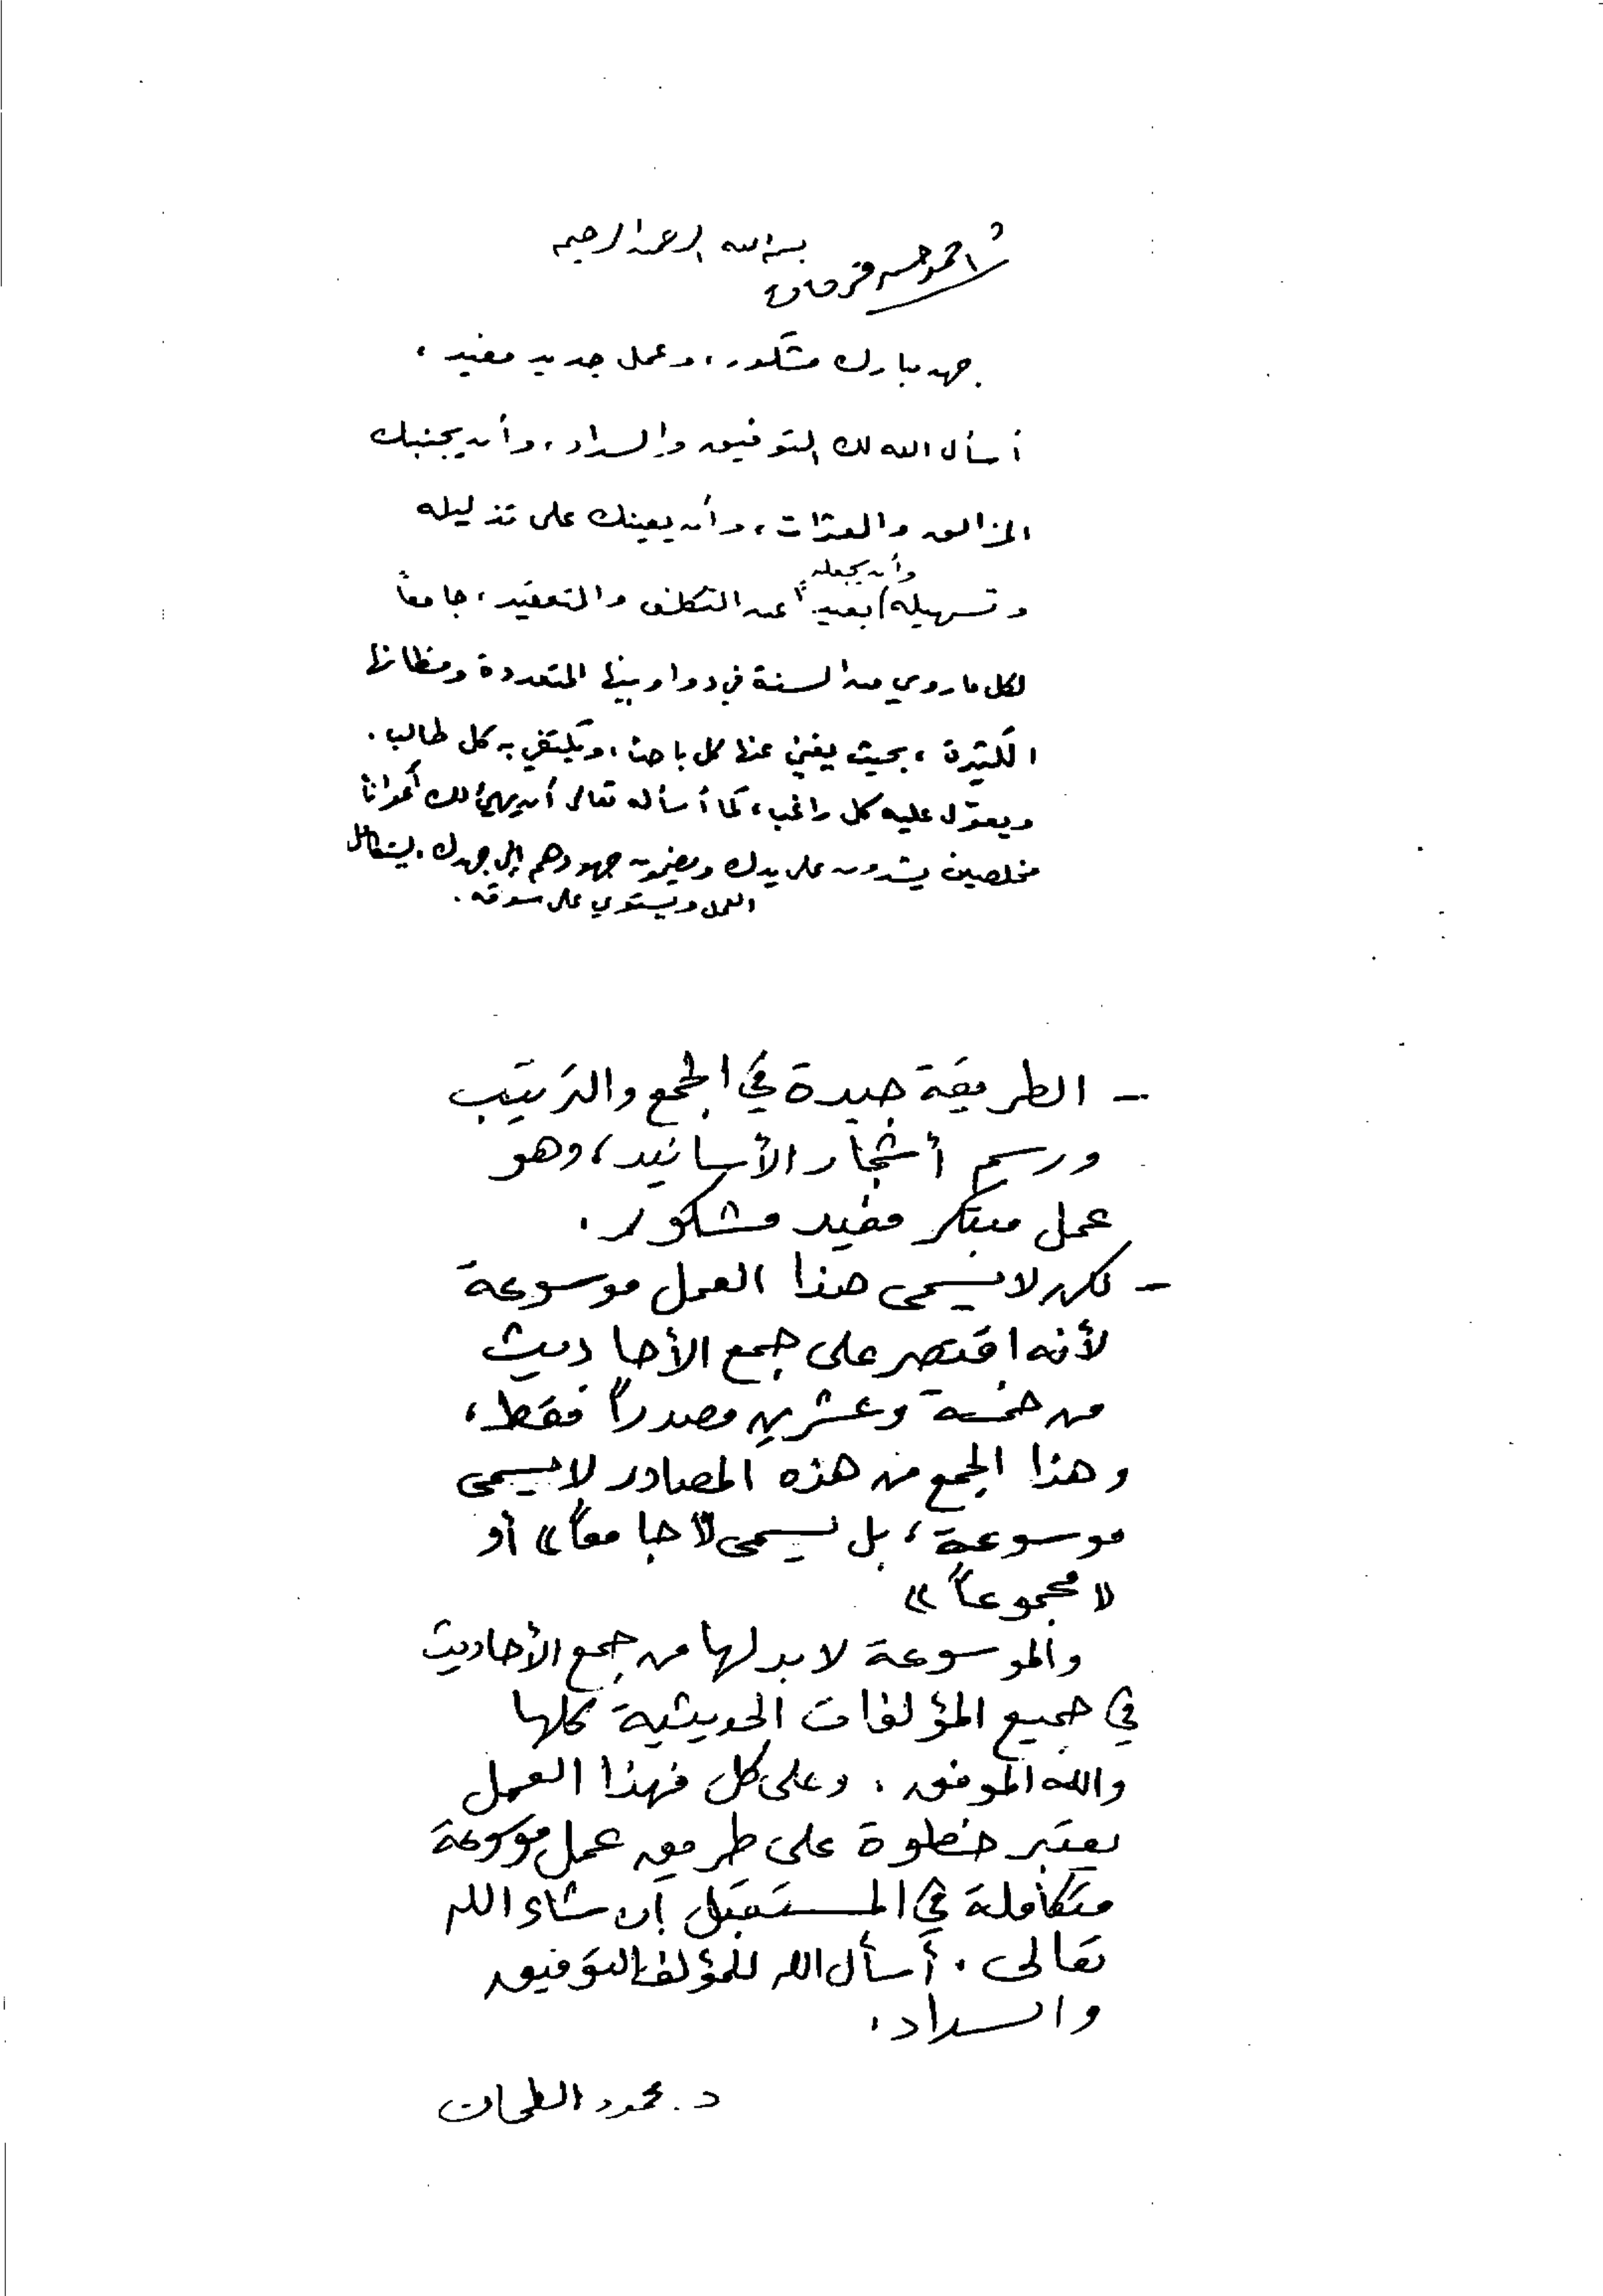 بسم الله الرحمن الرحيم
د احمد حسن فرحات
جهد مبارك مشكور، وعمل جديد مفيد،
أسأل الله لك التوفيق والسداد، وأن يجنبك
المزالق والعثرات، وأن يعينك على تذليله
وأن يجعله
وتسهيله بعيداً عن التكلف والتعقيد، جامعاً
لكل ما روي من السنة في دواوينها المتعددة ومظانها
الكثيرة، بحيث يغني عنها كل باحث، ويكتفي به كل طالب.
ويعوّل عليه كل راغب، كما أسأله تعالى أن يهيئ لك أعواناً
مخلصين يشدون على يدك ويضمون جهودهم إلى جهدك، ليتكامل
العمل ويستوي على سوقه.
- الطريقة جيدة في الجمع والترتيب
ورسم أشجار الأسانيد، وهو
عمل مبتكر مفيد مشكور.
- لكن لا يسمى هذا العمل موسوعة
لأنه اقتصر على جمع الأحاديث
من خمسة وعشرين مصدراً فقط،
وهذا الجمع من هذه المصادر لا يسمى
موسوعة، بل يسمى «جامعاً» أو
«مجموعاً»
والموسوعة لا بد لها من جمع الأحاديث
في جميع المؤلفات الحديثية كلها
والله الموفق. وعلى كل فهذا العمل
يعتبر خطوة على طريق عمل موسوعة
متكاملة في المستقبل إن شاء الله
تعالى. أسأل الله للمؤلف التوفيق
والسداد.
د. محمود الطحان